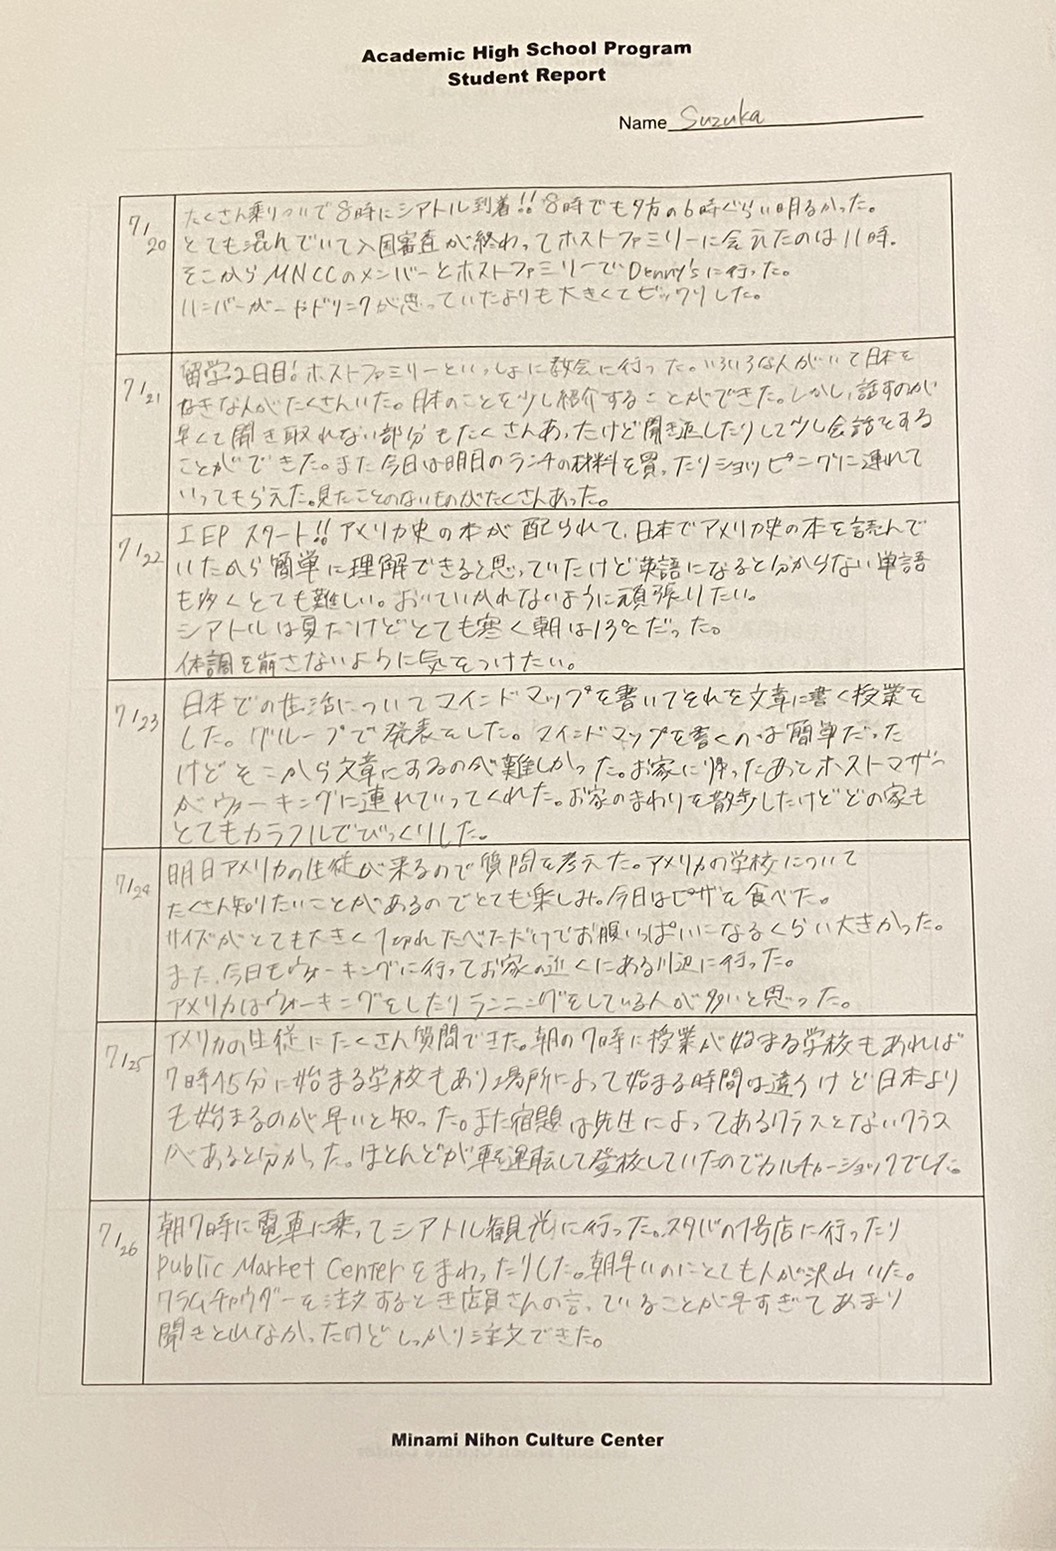 Academic High School Program
Student Report
Name Suzuka
7/20
たくさん乗りついで8時にシアトル到着!! 8時でも夕方の6時ぐらい明るかった。
とても混んでいて入国審査が終わってホストファミリーに会えたのは11時.
そこからMNCCのメンバーとホストファミリーでDenny'sに行った。
ハンバーガーやドリンクが思っていたよりも大きくてビックリした。
7/21
留学2日目! ホストファミリーといっしょに教会に行った。いろいろな人がいて日本を
好きな人がたくさんいた。日本のことを少し紹介することができた。しかし、話すのが
早くて聞き取れない部分もたくさんあったけど聞き返したりして少し会話をする
ことができた。また今日は明日のランチの材料を買ったりショッピングに連れて
いってもらえた。見たことのないものがたくさんあった。
7/22
IEPスタート!! アメリカ史の本が配られて、日本でアメリカ史の本を読んで
いたから簡単に理解できると思っていたけど英語になると分からない単語
も多くとても難しい。おいていかれないように頑張りたい。
シアトルは夏だけどとても寒く朝は13℃だった。
体調を崩さないように気をつけたい。
7/23
日本での生活についてマインドマップを書いてそれを文章に書く授業を
した。グループで発表をした。マインドマップを書くのは簡単だった
けどそこから文章にするのが難しかった。お家に帰ったあとホストマザー
がウォーキングに連れていってくれた。お家のまわりを散歩したけどどの家も
とてもカラフルでびっくりした。
7/24
明日アメリカの生徒が来るので質問を考えた。アメリカの学校について
たくさん知りたいことがあるのでとても楽しみ。今日はピザを食べた。
サイズがとても大きく1切れたべただけでお腹いっぱいになるくらい大きかった。
また、今日もウォーキングに行ってお家の近くにある川辺に行った。
アメリカはウォーキングをしたりランニングをしている人が多いと思った。
7/25
アメリカの生徒にたくさん質問できた。朝の7時に授業が始まる学校もあれば
7時45分に始まる学校もあり場所によって始まる時間は違うけど日本より
も始まるのが早いと知った。また宿題は先生によってあるクラスとないクラス
があると分かった。ほとんどが車を運転して登校していたのでカルチャーショックでした。
7/26
朝7時に電車に乗ってシアトル観光に行った。スタバの1号店に行ったり
Public Market Centerをまわったりした。朝早いのにとても人が沢山いた。
クラムチャウダーを注文するとき店員さんの言っていることが早すぎてあまり
聞きとれなかったけどしっかり注文できた。
Minami Nihon Culture Center